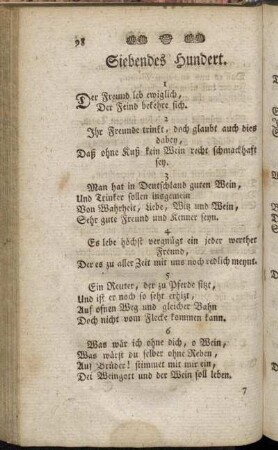 98
Siebendes Hundert.
1
Der Freund leb ewiglich,
Der Feind bekehre sich.
2
Ihr Freunde trinkt, doch glaubt auch dies
dabey,
Daß ohne Kuß kein Wein recht schmackhaft
sey.
3
Man hat in Deutschland guten Wein,
Und Trinker sollen insgemein
Von Wahrheit, Liebe, Witz und Wein,
Sehr gute Freund und Kenner seyn.
4
Es lebe höchst vergnügt ein jeder werther
Freund,
Der es zu aller Zeit mit uns noch redlich meynt.
5
Ein Reuter, der zu Pferde sitzt,
Und ist er noch so sehr erhizt,
Auf ofnen Weg und gleicher Bahn
Doch nicht vom Flecke kommen kann.
6
Was wär ich ohne dich, o Wein,
Was wärst du selber ohne Reben,
Auf Brüder! stimmet mit mir ein,
Der Weingott und der Wein soll leben.
7